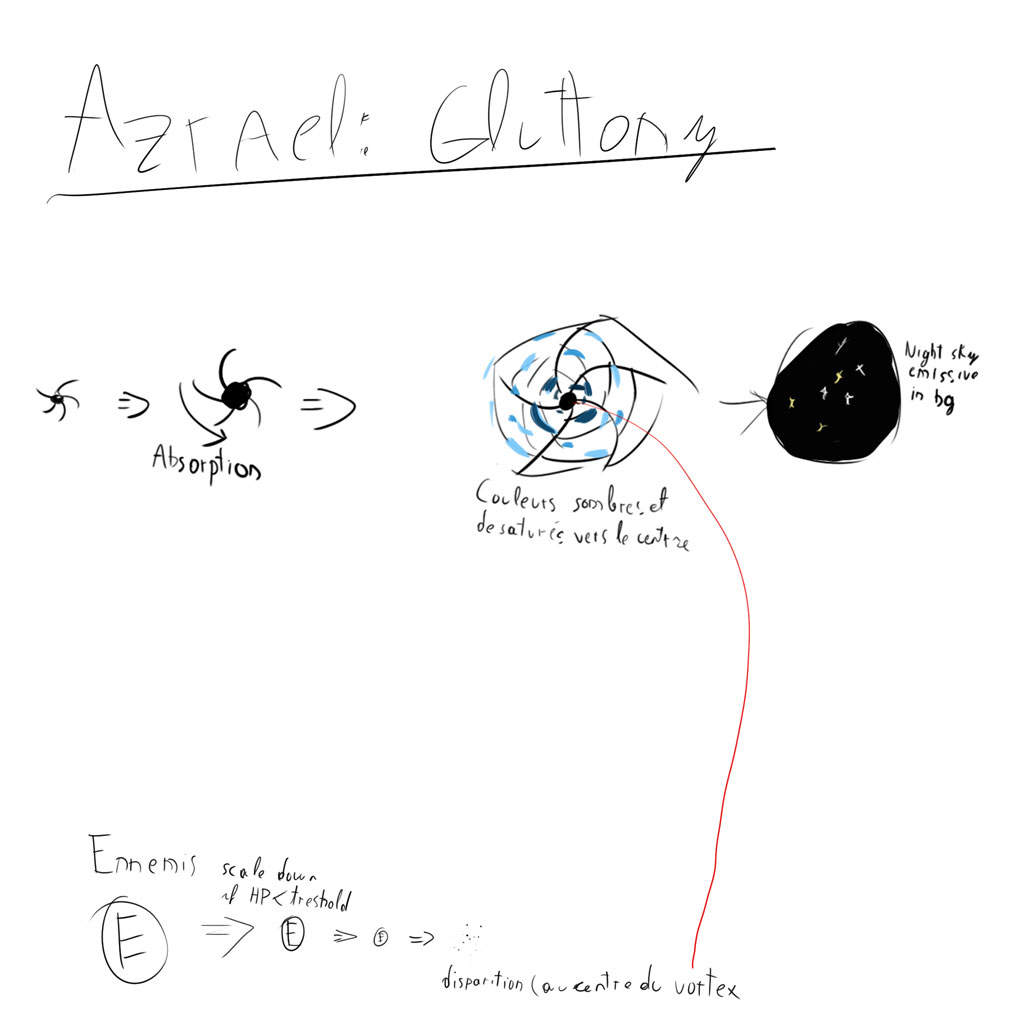 Azrael: Gluttony
Absorption
Couleurs sombres et
desaturés vers le centre
Night sky
emissive
in bg
Ennemis
scale down
if HP < treshold
E
E
E
disparition (au centre du vortex